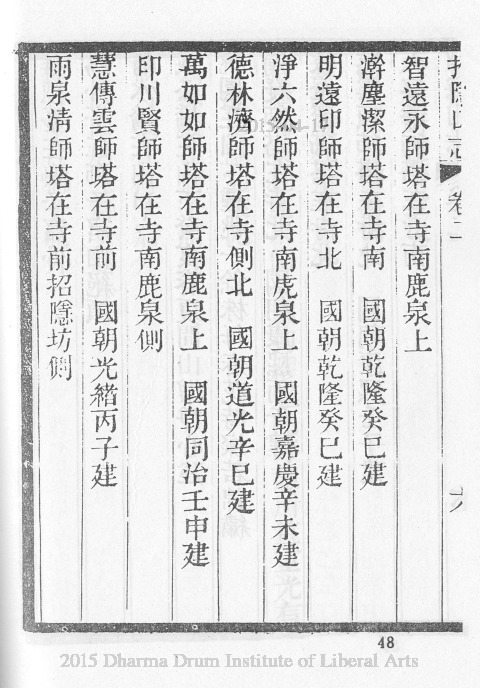 招隱山志 卷二 六
智遠永師塔在寺南鹿泉上
澣塵潔師塔在寺南 國朝乾隆癸巳建
明遠印師塔在寺北 國朝乾隆癸巳建
淨六然師塔在寺南虎泉上 國朝嘉慶辛未建
德林濟師塔在寺側北 國朝道光辛巳建
萬如如師塔在寺南鹿泉上 國朝同治壬申建
印川賢師塔在寺南鹿泉側
慧傳雲師塔在寺前 國朝光緒丙子建
雨泉清師塔在寺前招隱坊側
48
2015 Dharma Drum Institute of Liberal Arts